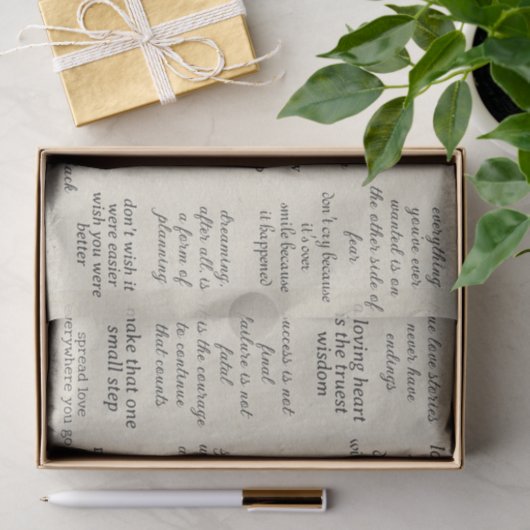 everything
you've ever
wanted is on
the other side of
fear
don't cry because
it's over
smile because
it happened
dreaming,
after all, is
a form of
planning
don't wish it
were easier
wish you were
better
ack
ue love stories
never have
endings
loving heart
is the truest
wisdom
uccess is not
final
failure is not
fatal
is the courage
to continue
that counts
make that one
small step
spread love
verywhere you go